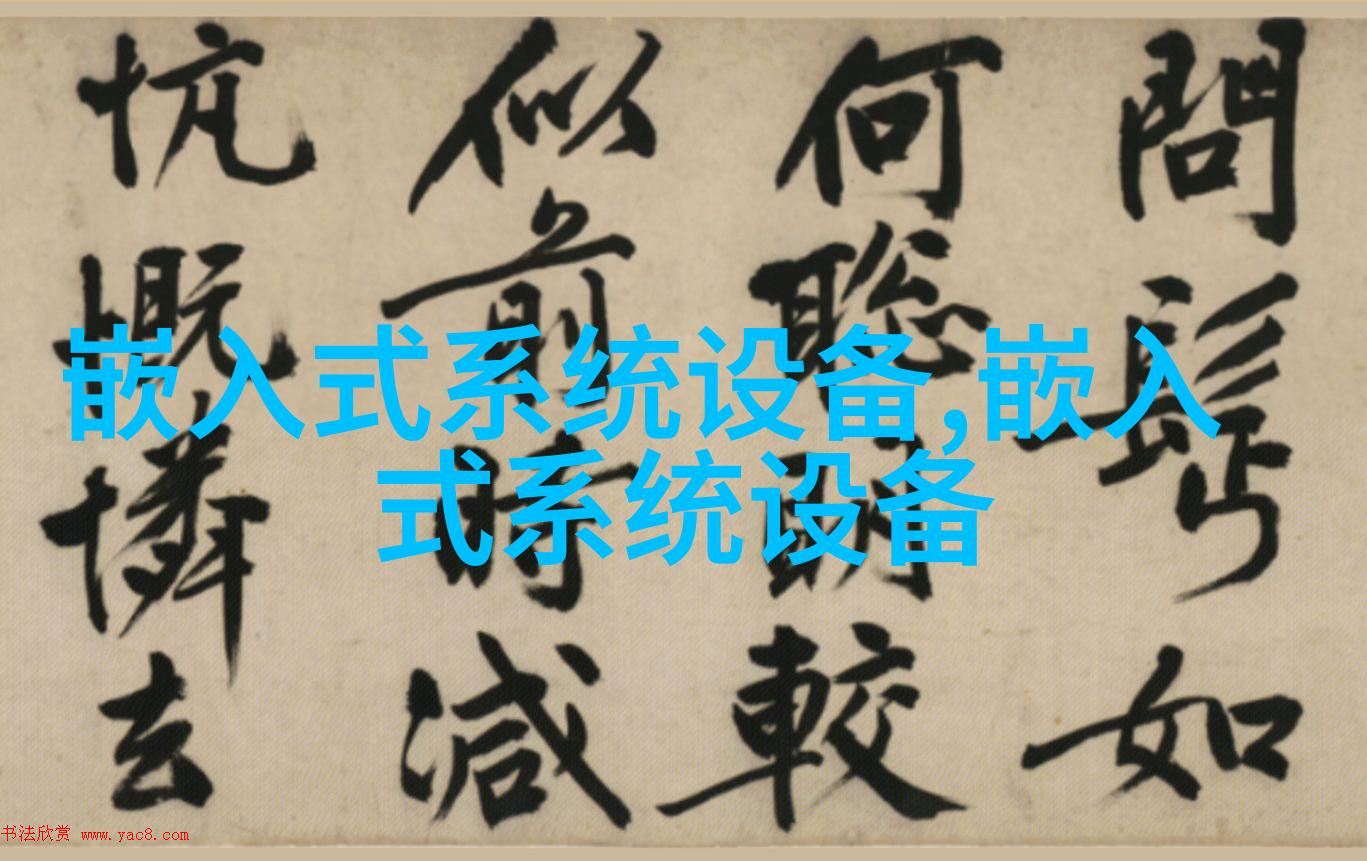 問髩如
何聡明較
似前時減
忼慨憐去
嵌入式系统设备,嵌入
式系统设备
书法欣赏 www.yac8.com